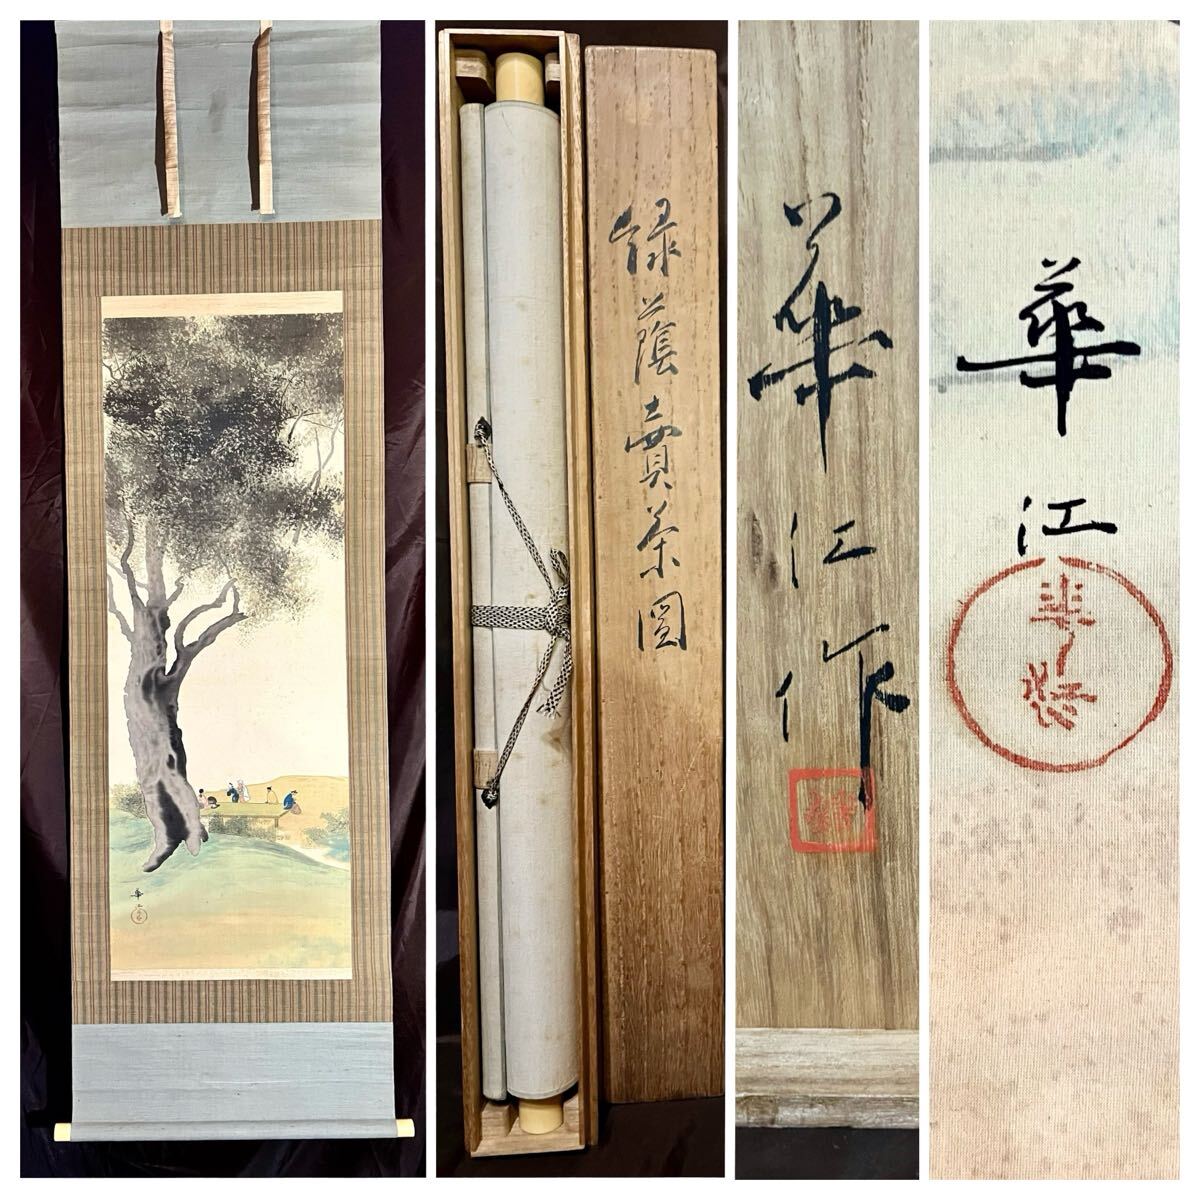 華江
緑蔭賣茶図
華江作
華江